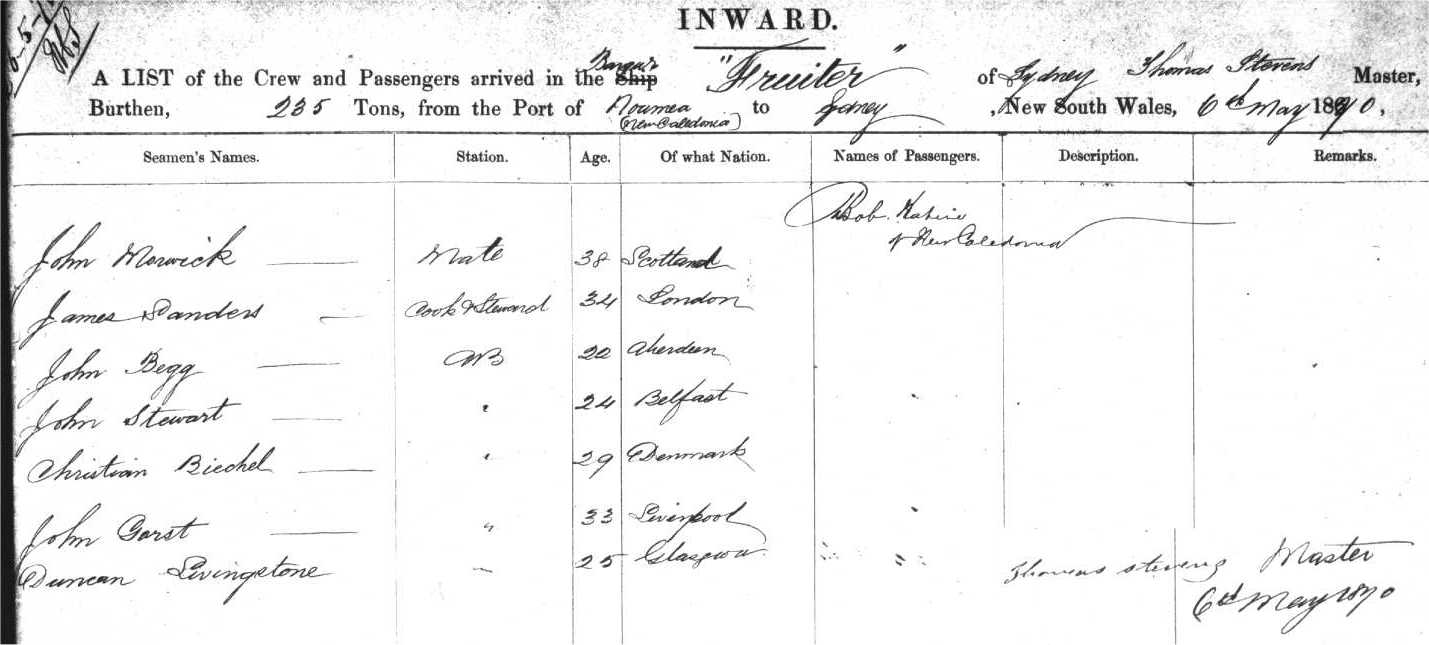 INWARD.
A LIST of the Crew and Passengers arrived in the Ship "Fruiter" of Sydney Thomas Stevens Master,
Burthen, 235 Tons, from the Port of Noumea (New Caledonia) to Sydney, New South Wales, 6th May 1870,
Seamen's Names. Station. Age. Of what Nation. Names of Passengers. Description. Remarks.
Bob
of New Caledonia
John Merwick Mate 38 Scotland
James Sanders Cook & Steward 34 London
John Begg AB 22 Aberdeen
John Stewart " 24 Belfast
Christian Biechel " 29 Denmark
John Gorst " 33 Liverpool
Duncan Livingstone 25 Glasgow
Thomas Stevens Master
6th May 1870